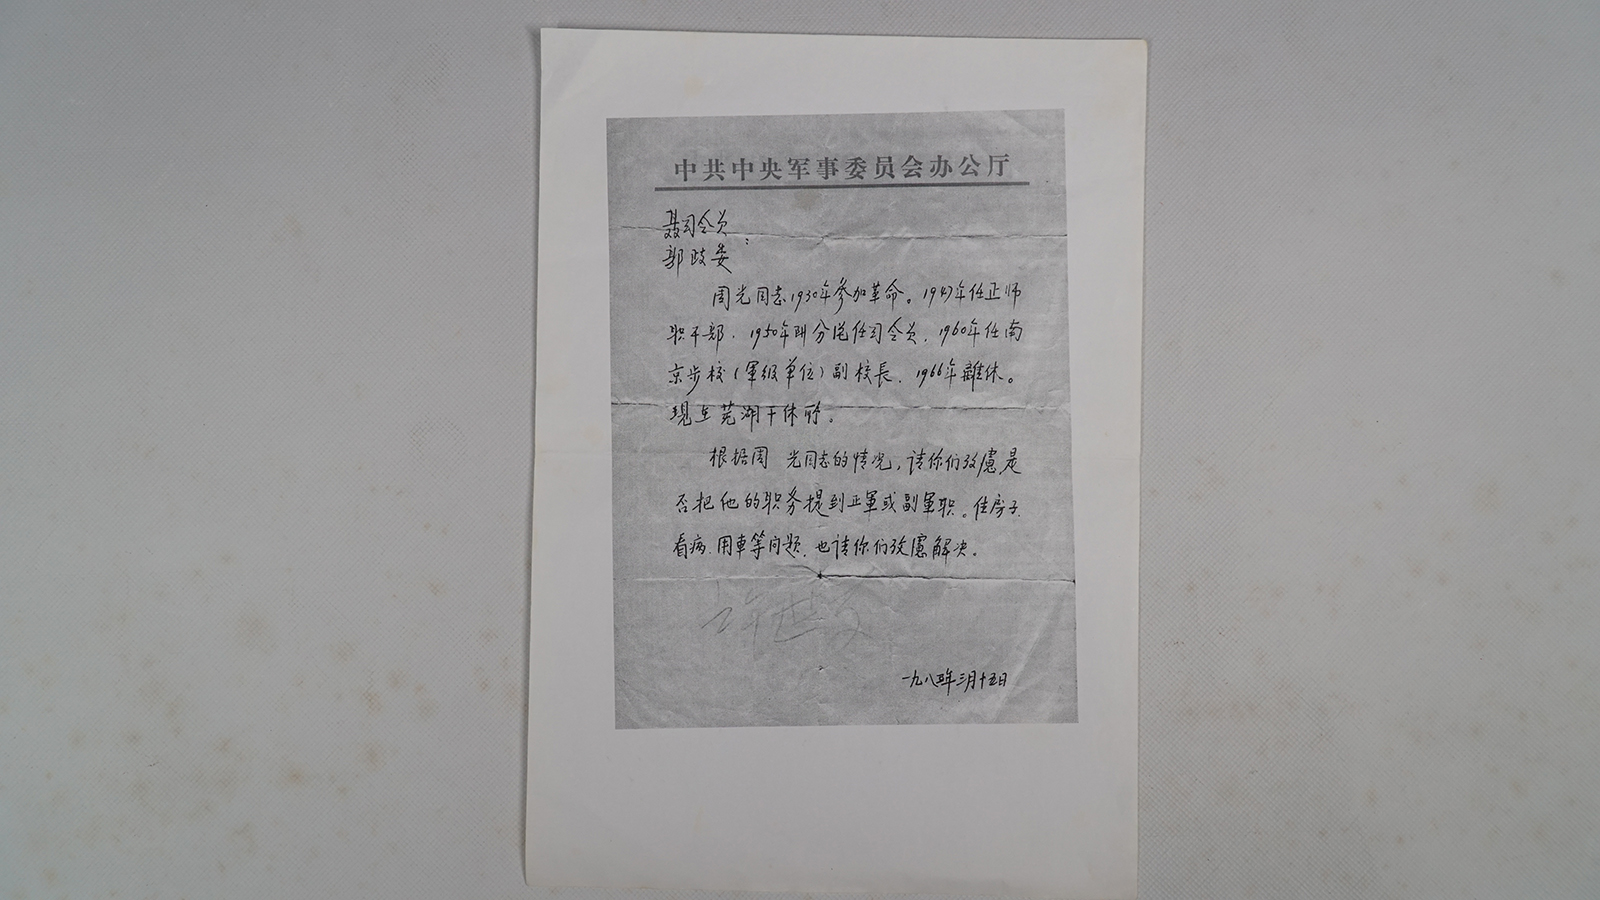 中共中央军事委员会办公厅
聂司令员
郭政委：
周光同志1930年参加革命。1947年任正师
职干部．1950年                任司令员．1960年任南
京步校（軍级单位）副校長．1966年離休。
現在芜湖干休所。
根据周 光同志的情况，请你们攷慮是
否把他的职务提到正軍或副軍职。住房子．
看病．用車等问题．也请你们攷慮解决。
许世友
一九八五年三月十五日